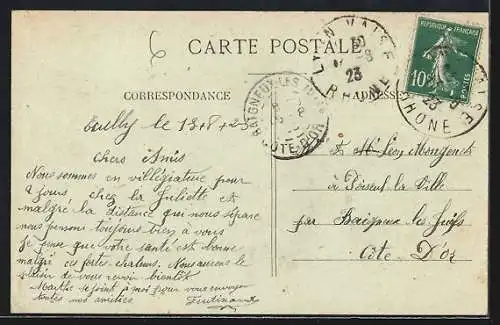 6
CARTE POSTALE
LYON VAISE
RHONE
23
REPUBLIQUE FRANÇAISE
10
BAIGNEUX-LES-JUIFS
COTE-D'OR
CORRESPONDANCE
ADRESSE
Ecully le 13+8+23
Chers Amis
Nous sommes en villégiature pour
2 jours chez la Juliette et
malgré la distance qui nous sépare
nous pensons toujours bien à vous
Je pense que votre santé est bonne
malgré ces fortes chaleurs. Nous aurons le
plaisir de vous revoir bientôt
se joint à moi pour vous envoyer
toutes nos amitiés
Ferdinand
Mr Léon
à la Ville
par Baigneux les Juifs
Côte D'or